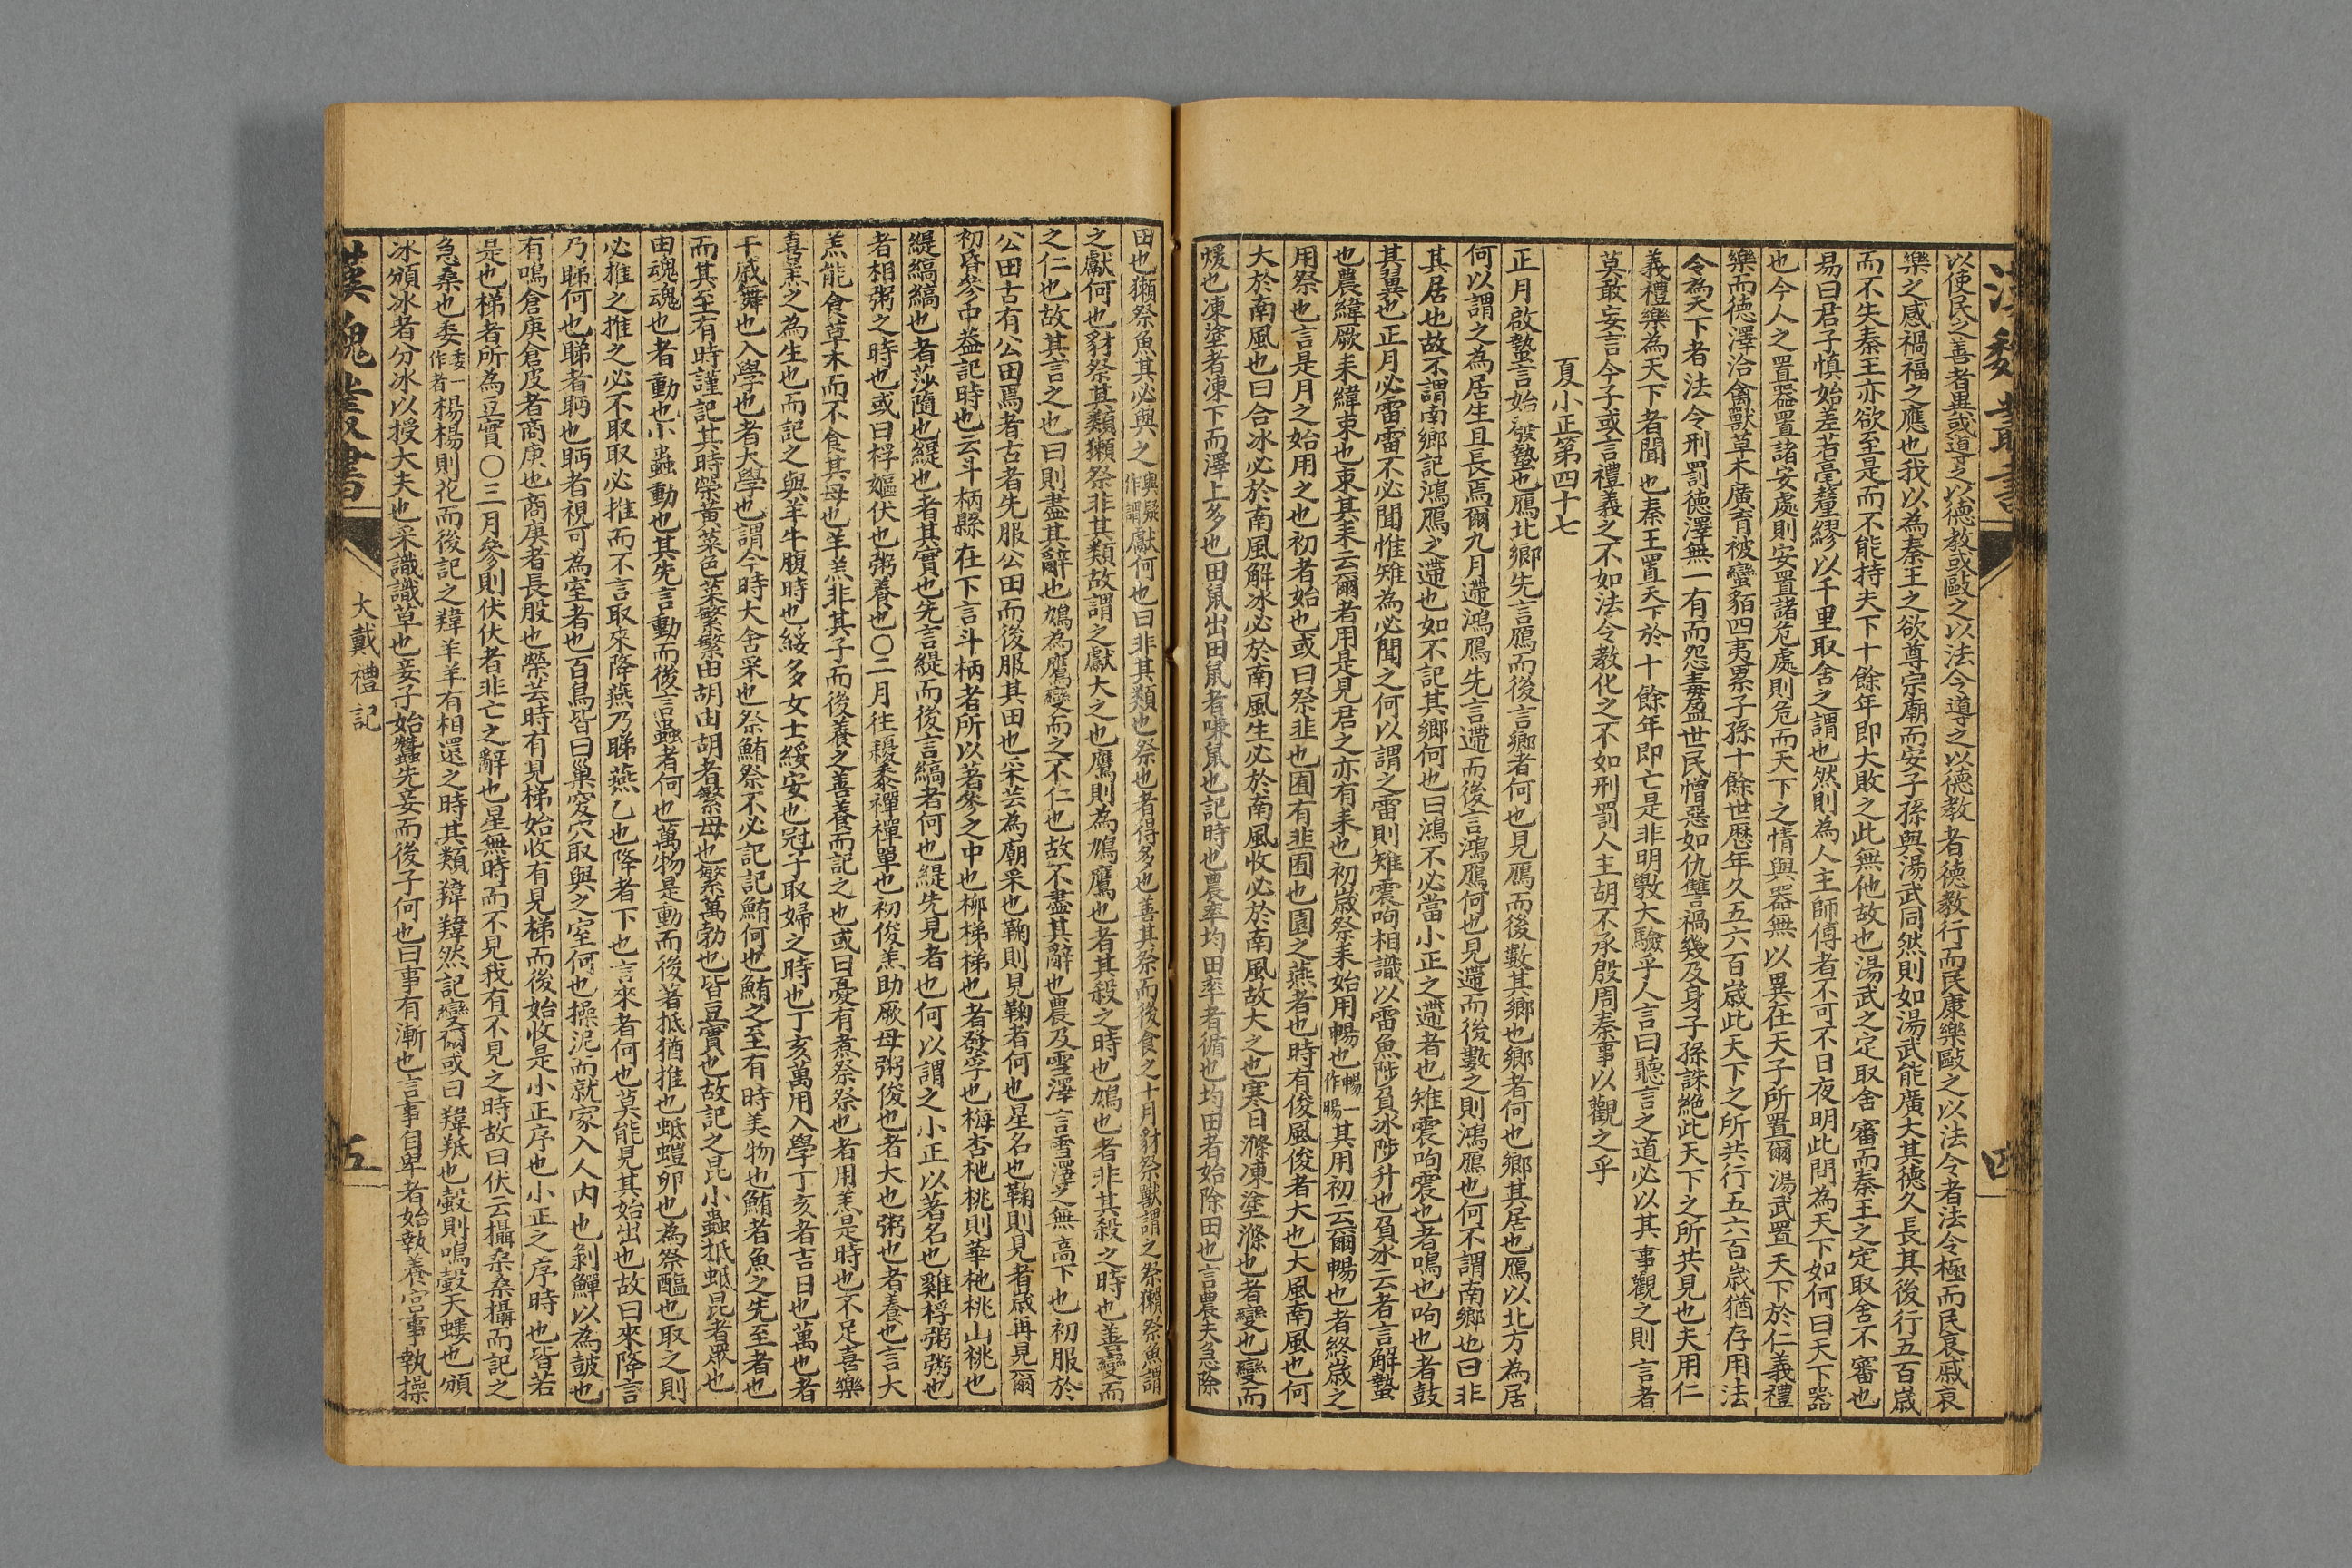 漢魏叢書
四
以使民之善者異或導之以德教或敺之以法令導之以德教者德教行而民康樂敺之以法令者法令極而民哀戚哀
樂之感禍福之應也我以為秦王之欲尊宗廟而安子孫與湯武同然則如湯武能廣大其德久長其後行五百歲
而不失秦王亦欲至是而不能持天下十餘年即大敗之此無他故也湯武之定取舍審而秦王之定取舍不審也
易曰君子慎始差若毫釐繆以千里取舍之謂也然則為人主師傅者不可不日夜明此問為天下如何曰天下器
也今人之置器置諸安處則安置諸危處則危而天下之情與器無以異在天子所置爾湯武置天下於仁義禮
樂而德澤洽禽獸草木廣育被蠻貊四夷累子孫十餘世歷年久五六百歲此天下之所共行五六百歲猶存用法
令為天下者法令刑罰德澤無一有而怨毒盈世民憎惡如仇讐禍幾及身子孫誅絕此天下之所共見也夫用仁
義禮樂為天下者聞也秦王置天下於十餘年即亡是非明斆大驗乎人言曰聽言之道必以其事觀之則言者
莫敢妄言今子或言禮義之不如法令教化之不如刑罰人主胡不承殷周秦事以觀之乎
夏小正第四十七
正月啟蟄言始發蟄也鴈北鄉先言鴈而後言鄉者何也見鴈而後數其鄉也鄉者何也鄉其居也鴈以北方為居
何以謂之為居生且長焉爾九月遰鴻鴈先言遰而後言鴻鴈何也見遰而後數之則鴻鴈也何不謂南鄉也曰非
其居也故不謂南鄉記鴻鴈之遰也如不記其鄉何也曰鴻不必當小正之遰者也雉震呴震也者鳴也呴也者鼓
其翼也正月必雷雷不必聞惟雉為必聞之何以謂之雷則雉震呴相識以雷魚陟負冰陟升也負冰云者言解蟄
也農緯厥耒緯束也束其耒云爾者用是見君之亦有耒也初歲祭耒始用暢也暢一作暘其用初云爾暢也者終歲之
用祭也言是月之始用之也初者始也或曰祭韭也囿有韭囿也園之燕者也時有俊風俊者大也大風南風也何
大於南風也曰合冰必於南風解冰必於南風生必於南風收必於南風故大之也寒日滌凍塗滌也者變也變而
煖也凍塗者凍下而澤上多也田鼠出田鼠者嗛鼠也記時也農率均田率者循也均田者始除田也言農夫急除
田也獺祭魚其必與之與疑作謂獻何也曰非其類也祭也者得多也善其祭而後食之十月豺祭獸謂之祭獺祭魚謂
之獻何也豺祭其類獺祭非其類故謂之獻大之也鷹則為鳩鷹也者其殺之時也鳩也者非其殺之時也善變而
之仁也故其言之也曰則盡其辭也鳩為鷹變而之不仁也故不盡其辭也農及雪澤言雪澤之無高下也初服於
公田古有公田焉者古者先服公田而後服其田也采芸為廟采也鞠則見鞠者何也星名也鞠則見者歲再見爾
初昏參中蓋記時也云斗柄縣在下言斗柄者所以著參之中也柳梯梯也者發孚也梅杏杝桃則華杝桃山桃也
緹縞縞也者莎隨也緹也者其實也先言緹而後言縞者何也緹先見者也何以謂之小正以著名也雞桴粥粥也
者相粥之時也或曰桴嫗伏也粥養也〇二月往耰黍襌襌單也初俊羔助厥母粥俊也者大也粥也者養也言大
羔能食草木而不食其母也羊羔非其子而後養之善養而記之也或曰憂有煮祭祭也者用羔是時也不足喜樂
喜羔之為生也而記之與羊牛腹時也綏多女士綏安也冠子取婦之時也丁亥萬用入學丁亥者吉日也萬也者
干戚舞也入學也者大學也謂今時大舍采也祭鮪祭不必記記鮪何也鮪之至有時美物也鮪者魚之先至者也
而其至有時謹記其時榮黃菜色菜繁繁由胡由胡者繁母也繁萬勃也皆豆實也故記之昆小蟲抵蚳昆者眾也
由魂魂也者動也小蟲動也其先言動而後言蟲者何也萬物是動而後著抵猶推也蚳螘卵也為祭醢也取之則
必推之推之必不取取必推而不言取來降燕乃睇燕乙也降者下也言來者何也莫能見其始出也故曰來降言
乃睇何也睇者眄也眄者視可為室者也百鳥皆曰巢突穴取與之室何也操泥而就家入人內也剝鱓以為鼓也
有鳴倉庚倉庚者商庚也商庚者長股也榮芸時有見梯始收有見梯而後始收是小正序也小正之序時也皆若
是也梯者所為豆實〇三月參則伏伏者非亡之辭也星無時而不見我有不見之時故曰伏云攝桑桑攝而記之
急桑也委委一作者楊楊則花而後記之羵羊羊有相還之時其類羵羵然記變爾或曰羵羝也螜則鳴螜天螻也頒
冰頒冰者分冰以授大夫也采識識草也妾子始蠶先妾而後子何也曰事有漸也言事自卑者始執養宮事執操
漢魏叢書
大戴禮記
五